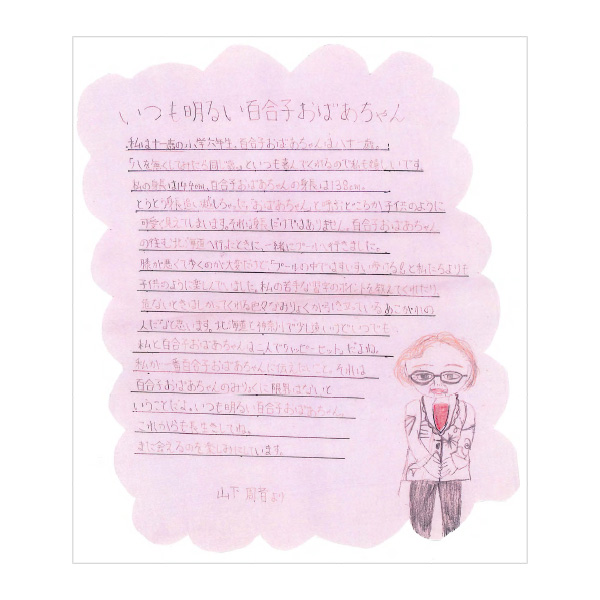 いつも明るい百合子おばあちゃん
私は十一歳の小学六年生。百合子おばあちゃんは八十一歳。
「八を無くしてみたら同い歳。」といつも喜んでくれるので私も嬉しいです。
私の身長は144cm。百合子おばあちゃんの身長は138cm。
とうとう身長追いこしちゃった。おばあちゃんと呼ぶどころか子供のように
可愛く見えてしまいます。それは身長だけではありません。百合子おばあちゃん
の住む北海道へ行ったときに、一緒にプールへ行きました。
膝が悪くて歩くのが大変だけど「プールの中ではすいすい歩ける」と私たちよりも
子供のように楽しんでいました。私の苦手な習字のポイントを教えてくれたり、
危ないときはしかってくれる色々なみりょくがつまっているあこがれの
人だなと思います。北海道と神奈川で少し遠いけどいつでも
私と百合子おばあちゃんは二人でハッピーセットだよね。
私が一番百合子おばあちゃんに伝えたいこと。それは
百合子おばあちゃんのみりょくに限界はないと
いうことだよ。いつも明るい百合子おばあちゃん。
これからも長生きしてね。
また会えるのを楽しみにしています。
山下 より